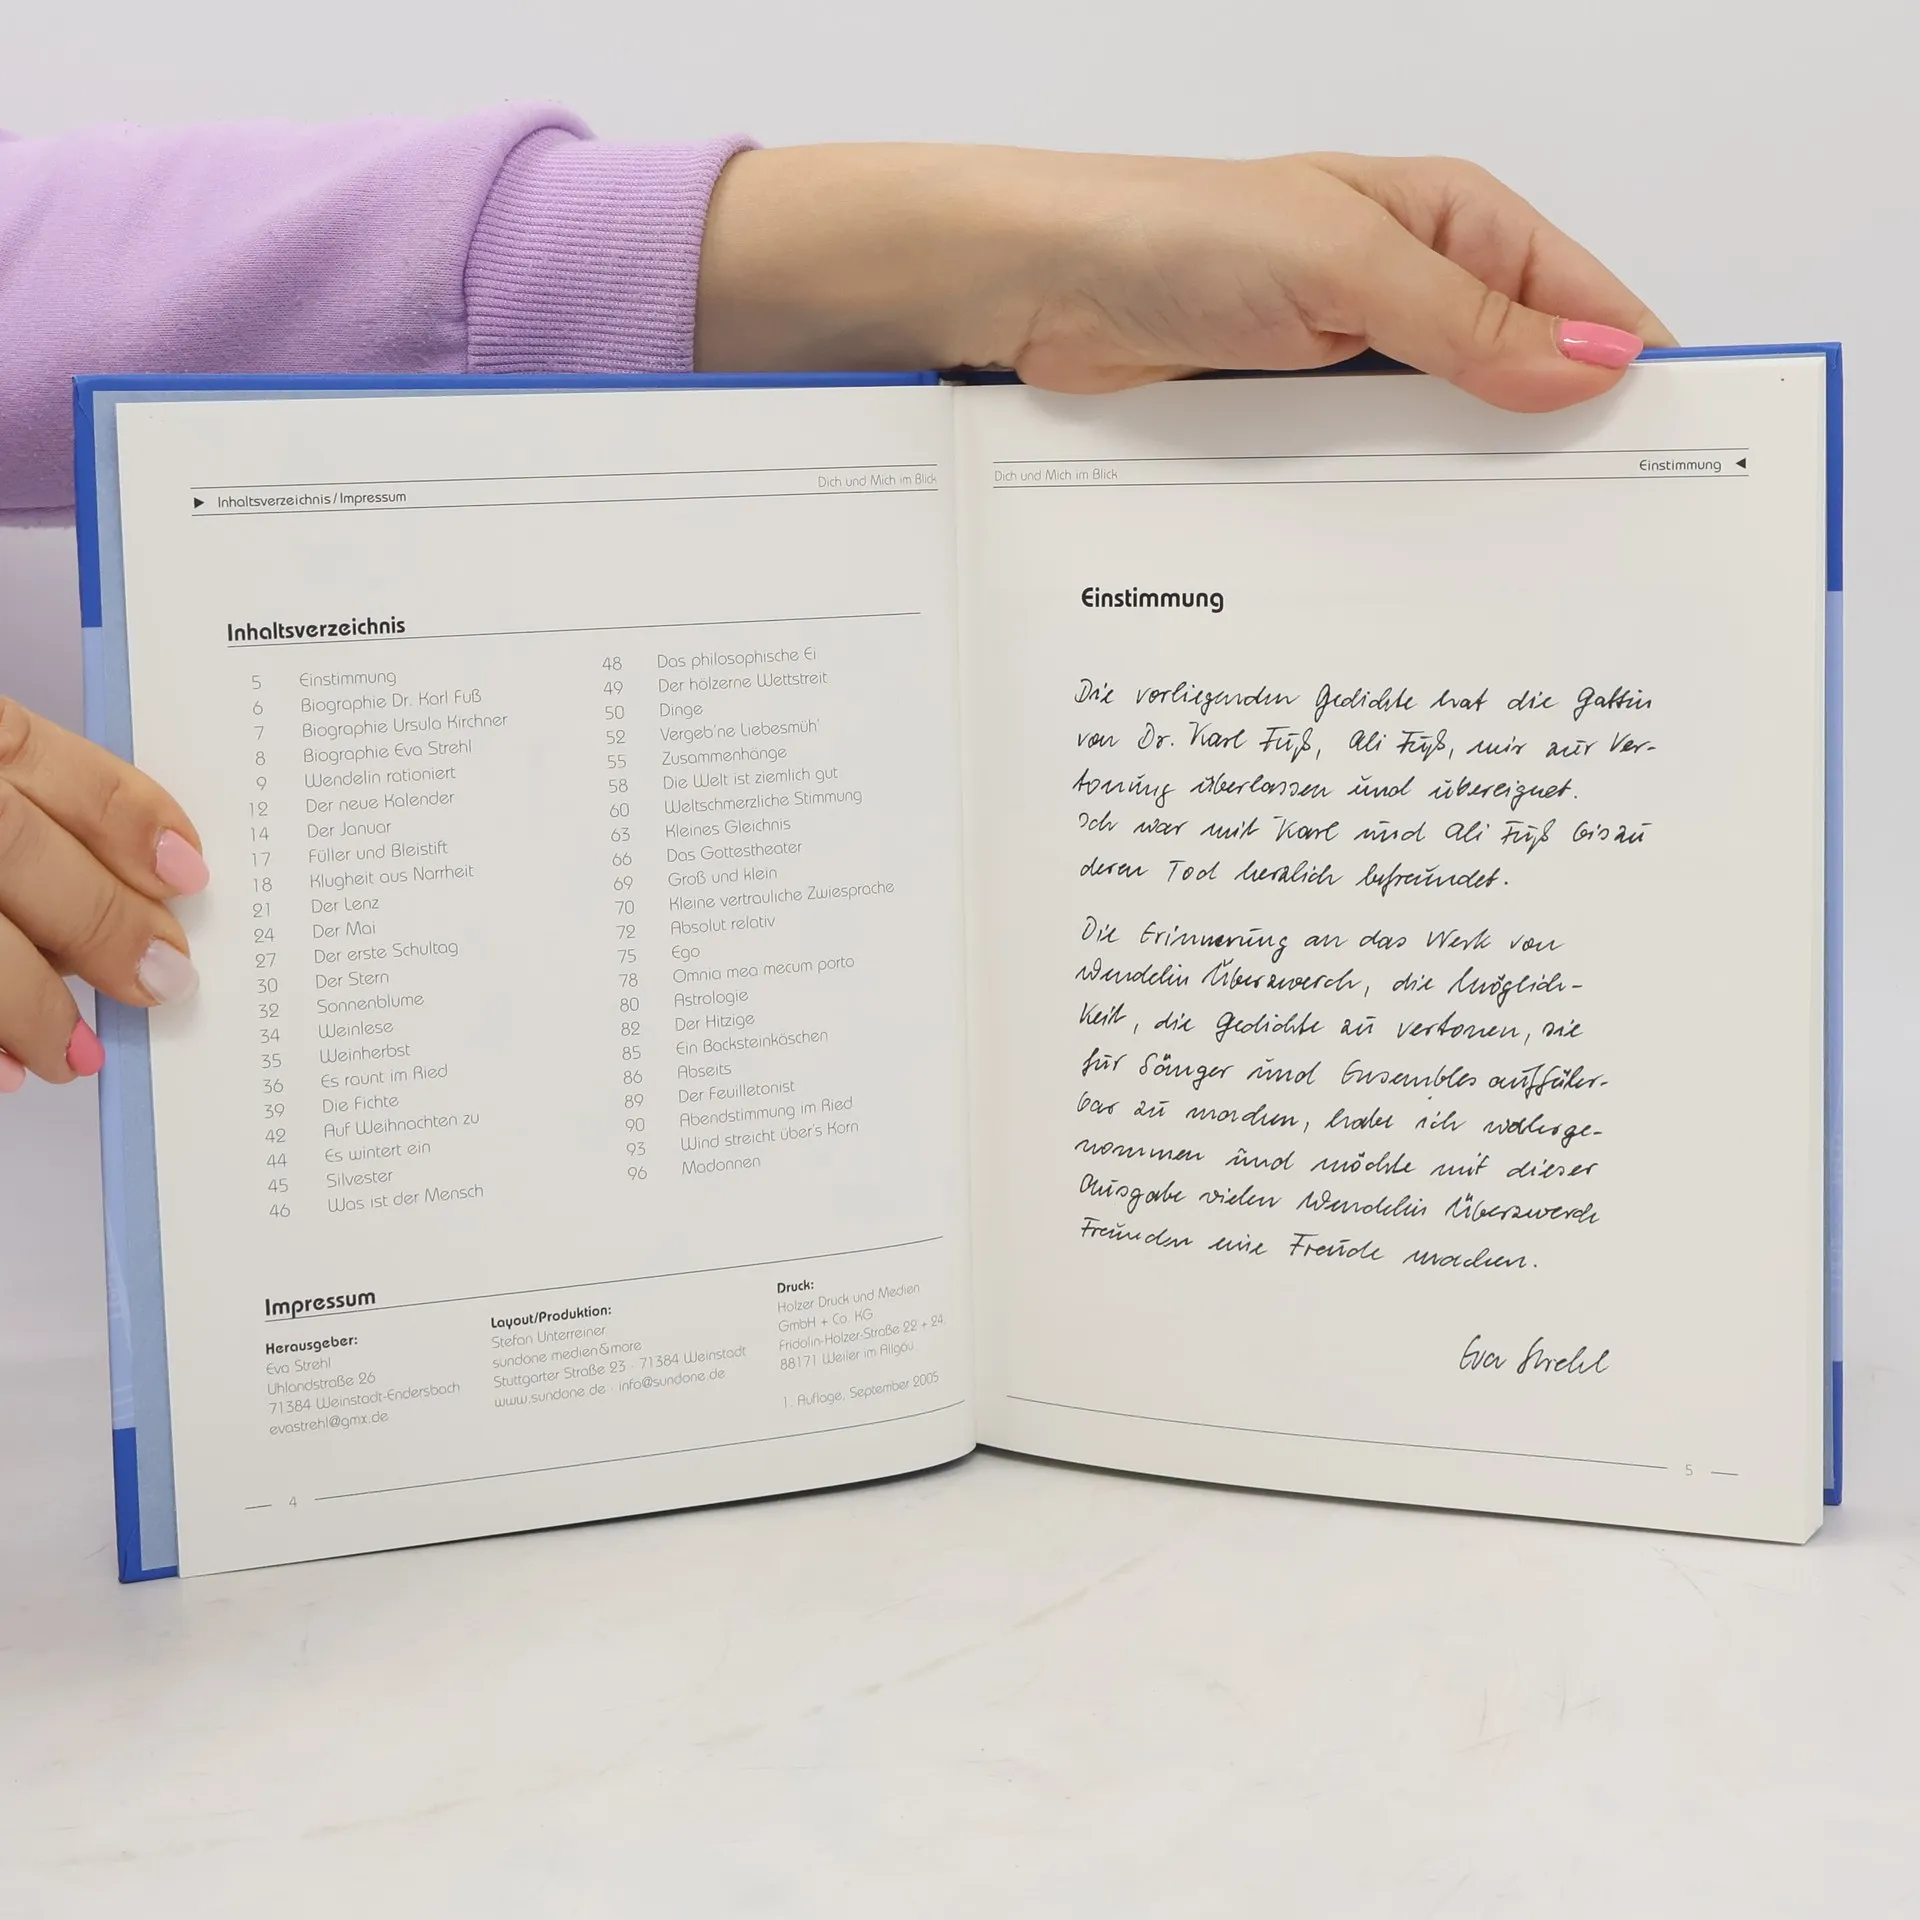 ▶ Inhaltsverzeichnis / Impressum
Dich und Mich im Blick
Inhaltsverzeichnis
5 Einstimmung
6 Biographie Dr. Karl Fuß
7 Biographie Ursula Kirchner
8 Biographie Eva Strehl
9 Wendelin rationiert
12 Der neue Kalender
14 Der Januar
17 Füller und Bleistift
18 Klugheit aus Narrheit
21 Der Lenz
24 Der Mai
27 Der erste Schultag
30 Der Stern
32 Sonnenblume
34 Weinlese
35 Weinherbst
36 Es raunt im Ried
39 Die Fichte
42 Auf Weihnachten zu
44 Es wintert ein
45 Silvester
46 Was ist der Mensch
48 Das philosophische Ei
49 Der hölzerne Wettstreit
50 Dinge
52 Vergeb'ne Liebesmüh'
55 Zusammenhänge
58 Die Welt ist ziemlich gut
60 Weltschmerzliche Stimmung
63 Kleines Gleichnis
66 Das Gottestheater
69 Groß und klein
70 Kleine vertrauliche Zwiesprache
72 Absolut relativ
75 Ego
78 Omnia mea mecum porto
80 Astrologie
82 Der Hitzige
85 Ein Backsteinkäschen
86 Abseits
89 Der Feuilletonist
90 Abendstimmung im Ried
93 Wind streicht über's Korn
96 Madonnen
Impressum
Herausgeber:
Eva Strehl
Uhlandstraße 26
71384 Weinstadt-Endersbach
evastrehl@gmx.de
Layout/Produktion:
Stefan Unterreiner
sundone medien&more
Stuttgarter Straße 23 · 71384 Weinstadt
www.sundone.de · info@sundone.de
Druck:
Holzer Druck und Medien
GmbH + Co. KG
Fridolin-Holzer-Straße 22 + 24
88171 Weiler im Allgäu
1. Auflage, September 2005
4
Dich und Mich im Blick
Einstimmung ◀
Einstimmung
Die vorliegenden Gedichte hat die Gattin
von Dr. Karl Fuß, Ali Fuß, mir zur Ver-
tonung überlassen und übereignet.
Ich war mit Karl und Ali Fuß bis zu
deren Tod herzlich befreundet.
Die Erinnerung an das Werk von
Wendelin Überzwerch, die Möglich-
keit, die Gedichte zu vertonen, sie
für Sänger und Ensembles aufführ-
bar zu machen, habe ich wahrge-
nommen und möchte mit dieser
Ausgabe vielen Wendelin Überzwerch
Freunden eine Freude machen.
Eva Strehl
5